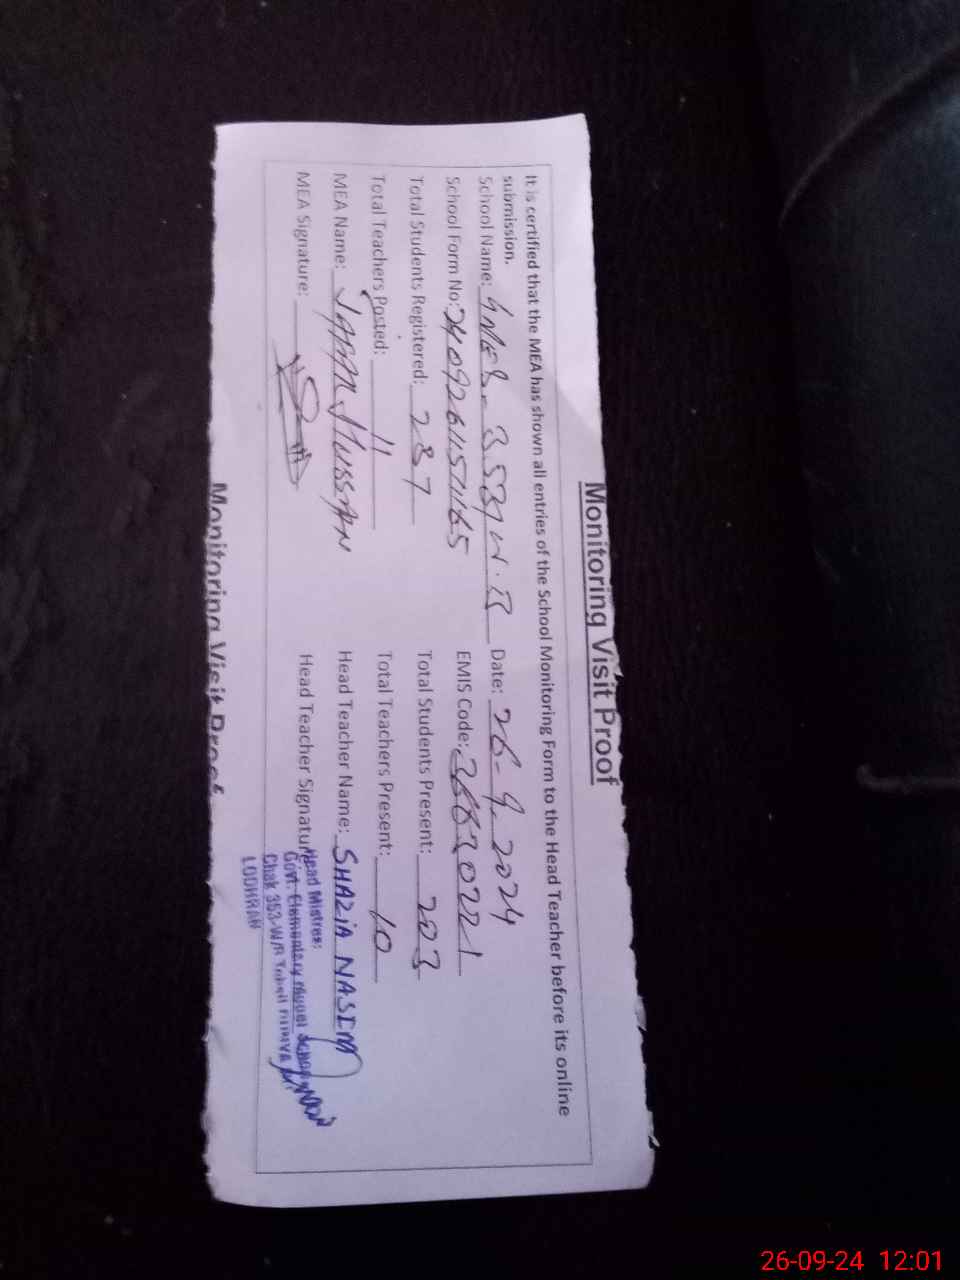 Monitoring Visit Proof
It is certified that the MEA has shown all entries of the School Monitoring Form to the Head Teacher before its online
submission.
School Name: GMES-353/W.B Date: 26-9-2024
School Form No: EMIS Code:
Total Students Registered: 287 Total Students Present: 203
Total Teachers Posted: 11 Total Teachers Present: 10
MEA Name: Head Teacher Name: SHAZIA NASEM
MEA Signature: Head Teacher Signature
Head Mistres:
Govt. Elementary School
Chak 353-W/B
LODHRAN
Monitoring Visit Proof
26-09-24 12:01